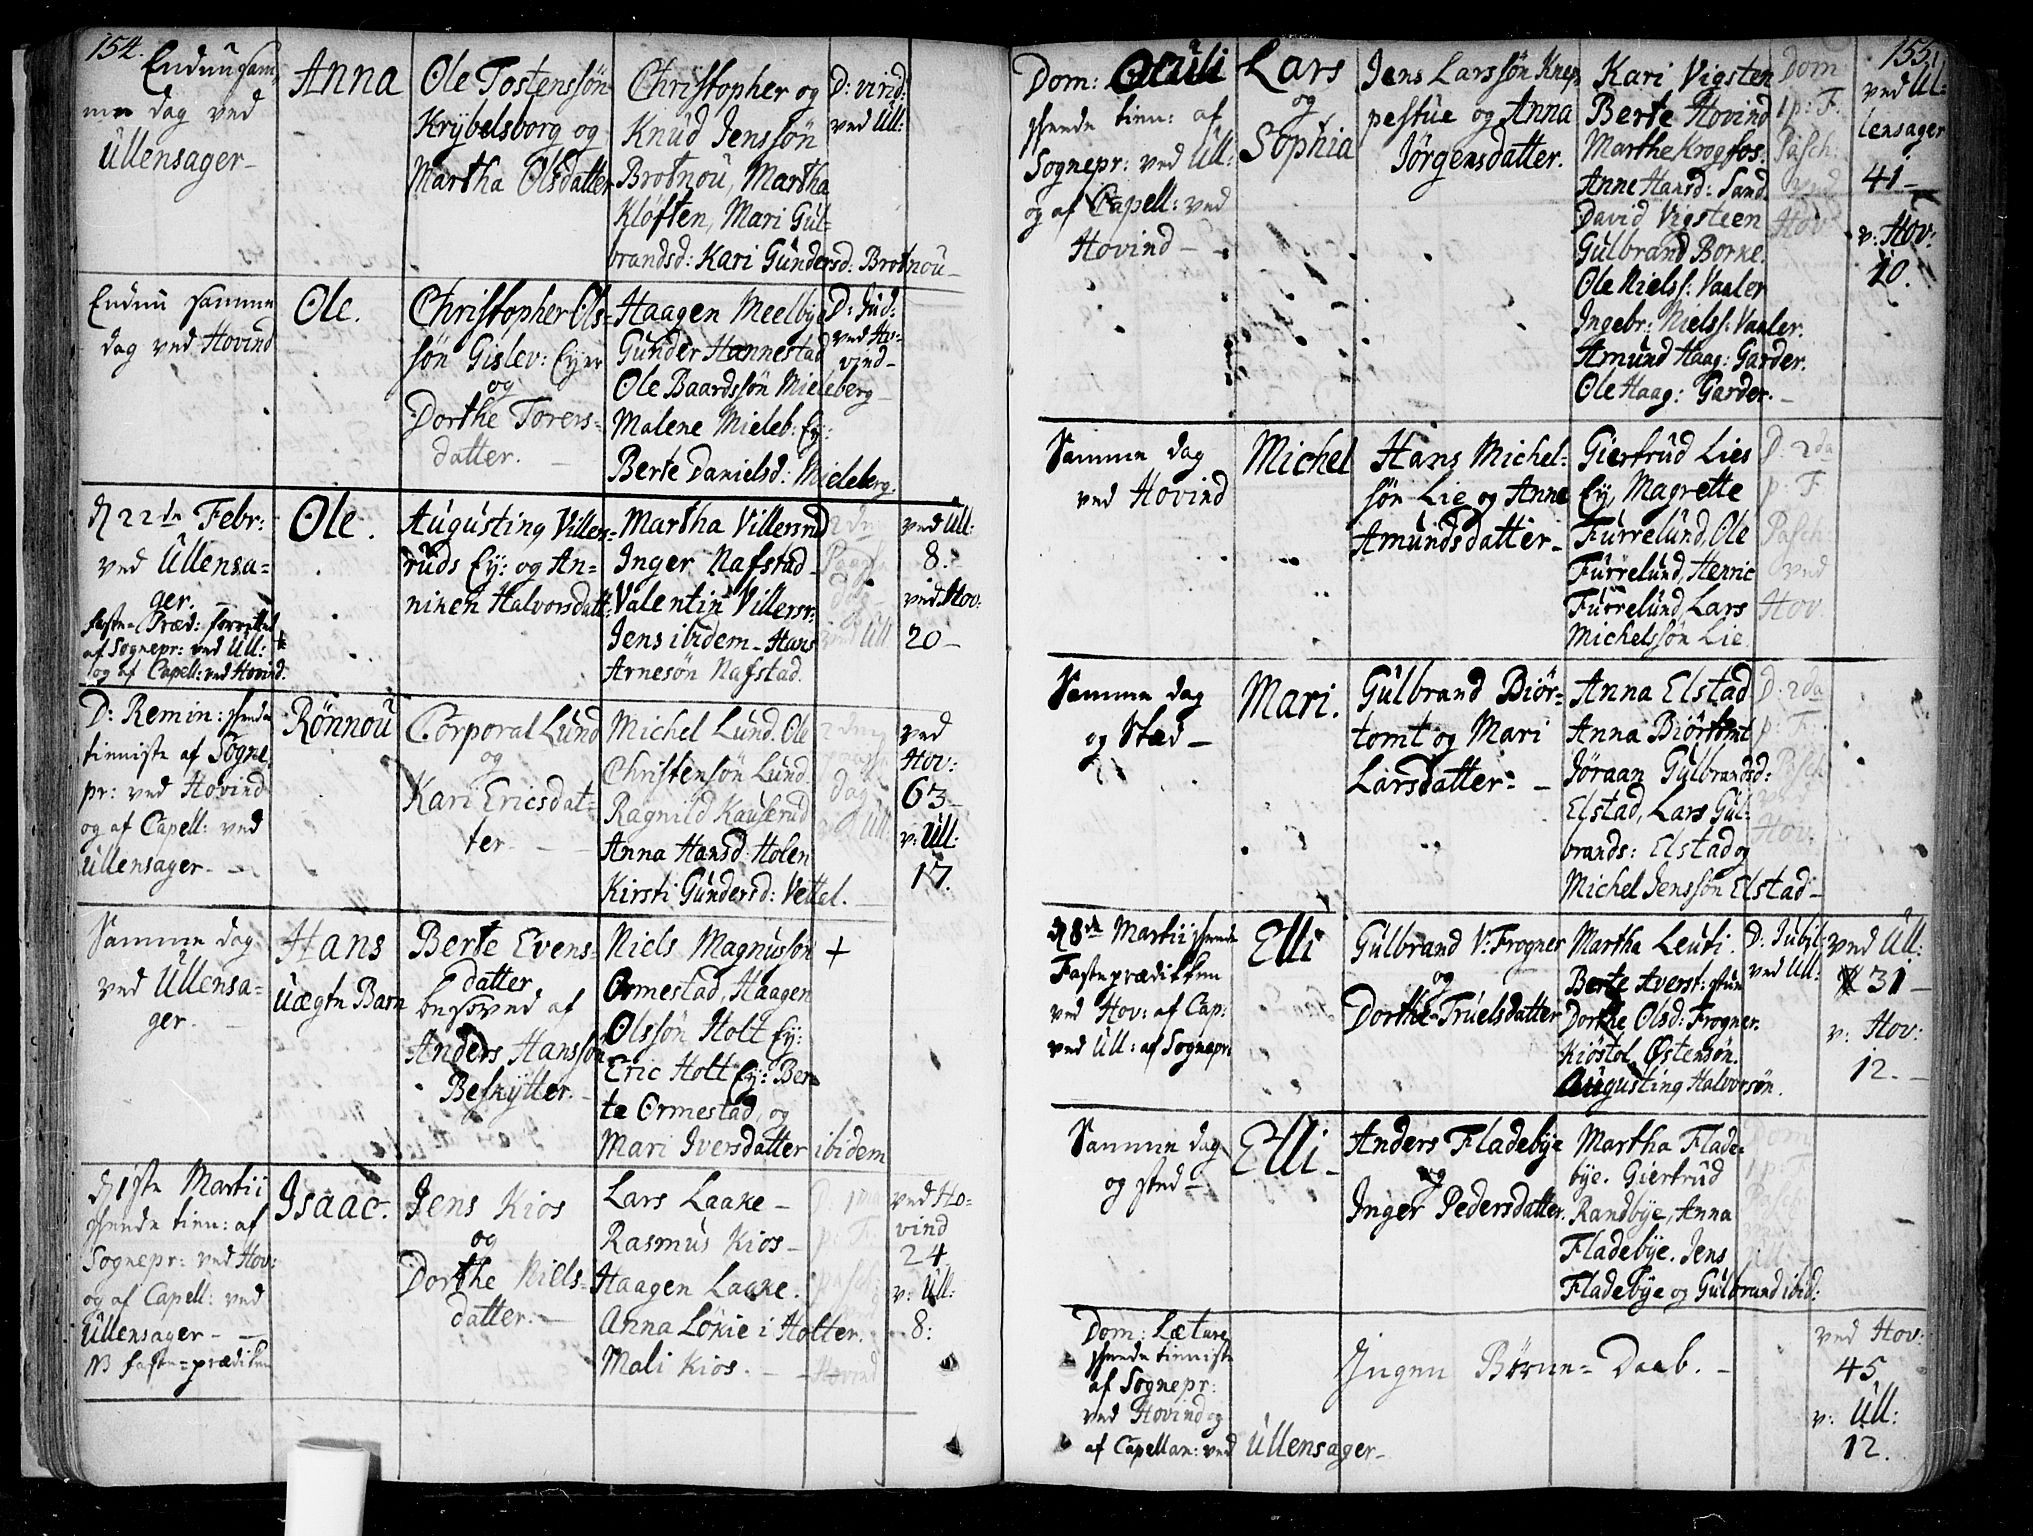 154.
Endnu sam-
me dag ved
Ullensager-
Anna
Ole Tostenssøn
Krybelsborg og
Martha Olsdatter
Christopher og
Knud Jenssøn
Brotnou, Martha
Kløften, Mari Gul-
brandsd: Kari Gundersd: Brotnou-
D: virid:
ved Ull:
Endnu samme
dag ved Hovind
Ole.
Christopher Ols-
søn Gislev: Eyer
og
Dorthe Torers-
datter.
Haagen Meelbye
Gunder Hannestad
Ole Baardssøn Mieleberg-
Malene Mieleb: Ey:
Berte Danielsd: Mieleberg.
D: Jud:
ved Ho-
vind-
d 22de Febr:
ved Ullensa-
ger.
faste-Præd: forrettet
af Sognepr: ved Ull:
og af Capell: ved Hovind.
Ole.
Augusting Viller-
ruds Ey: og An-
nichen Halvorsdatt:
Martha Villerud
Inger Nafstad-
Valentin Villerr:
Jens ibidem-Hans
Arnesøn Nafstad.
2den
Paaske
dag
ved Ull
ved Ull:
8.
ved Hov:
20-
D: Remin: skeede
tienniste af Sogne
pr: ved Hovind
og af Capell: ved
Ullensager-
Rønnou
Corporal Lund
og
Kari Ericsdat-
ter.
Michel Lund. Ole
Christensøn Lund
Ragnild Kauserud
Anna Hansd: Holen
Kirsti Gundersd: Vettal.
2den
Paaske
dag
ved Ull.
ved
Hov:
63-
v: Ull:
17.
Samme dag
ved Ullensa-
ger.
Hans
Uægte Barn
Berte Evens-
datter
besvved af
Anders Hanssøn
Beskytter.
Niels Magnussøn
Ormestad, Haagen
Olssøn Holt Ey:
Eric Holt Ey: Ber-
te Ormestad, og
Mari Iversdatter ibidem
+
d 1ste Martii
skeede tien: af
Sognepr: ved Hov:
og af Capell: ved
Ullensager-
NB faste-prædiken
Isaac.
Jens Kios
og
Dorthe Niels-
datter.
Lars Laake-
Rasmus Kios-
Haagen Laake.
Anna Løkie i Holter.
Mali Kios.
D 1ma
p: T.
pasch:
ved
Hovind
ved Ho-
vind
24
v: Ull:
8:
155.
Dom: Oculi
skeede tien: af
Sognepr: ved Ull:
og af Capell: ved
Hovind-
Lars
og
Sophia
Jens Larssøn Knep
pestue og Anna
Jørgensdatter.
Kari Vigsten
Berte Hovind
Marthe Krogfos.
Anne Hansd: Sand.
David Vigsteen
Gulbrand Borke.
Ole Nielss: Vaaler
Ingebr: Nielss: Vaaler.
Amund Haag: Garder.
Ole Haag: Garder.-
Dom
1 p: T.
Pasch:
ved
Hov:
ved Ul-
lensager
41-
v: Hov:
20.
Samme dag
ved Hovind
Michel
Hans Michel-
søn Lie og Anne
Amundsdatter-
Giertrud Lies
Ey, Magrette
Furrelund, Ole
Furrelund, Henric
Furrelund, Lars
Michelssøn Lie.
D: 2da
p: T
Pasch:
ved
Hov.
Samme dag
og Stæd-
Mari.
Gulbrand Biør-
tomt og Mari
Larsdatter-
Anna Elstad
Anna Biørtomt
Jøraan Gulbrandsd:
Elstad, Lars Gul-
brands: Elstad og
Michel Jenssøn Elstad-
D: 2da
p: T.
Pasch
ved
Hov.
d 8de Martii skeede
Fasteprædikken
ved Hov: af Cap:
ved Ull: af Sognepr:
Elli
Gulbrand V: Frogner
og
Dorthe Truelsdatter
Martha Leuti.
Berte Averst: stue
Dorthe Olsd: Frogner.
Kiøstol Østensøn.
Augusting Halvorsøn.
D: Jubil:
ved Ull:
ved Ull:
31-
v: Hov:
12.-
Samme dag
og sted-
Elli-
Anders Fladebye
og
Inger Pedersdatter.
Martha Flade-
bye. Giertrud
Randbye, Anna
Fladebye. Jens
Fladebye og Gulbrand ibid:
Dom
1 p: T
Pasch
ved
Ull:
Dom: Lætare
skeede tienniste
af Sognepr:
ved Hovind og
af Capellan: ved Ullensager-
Ingen Børne-Daab.-
ved Hov:
45
v: Ull:
12.